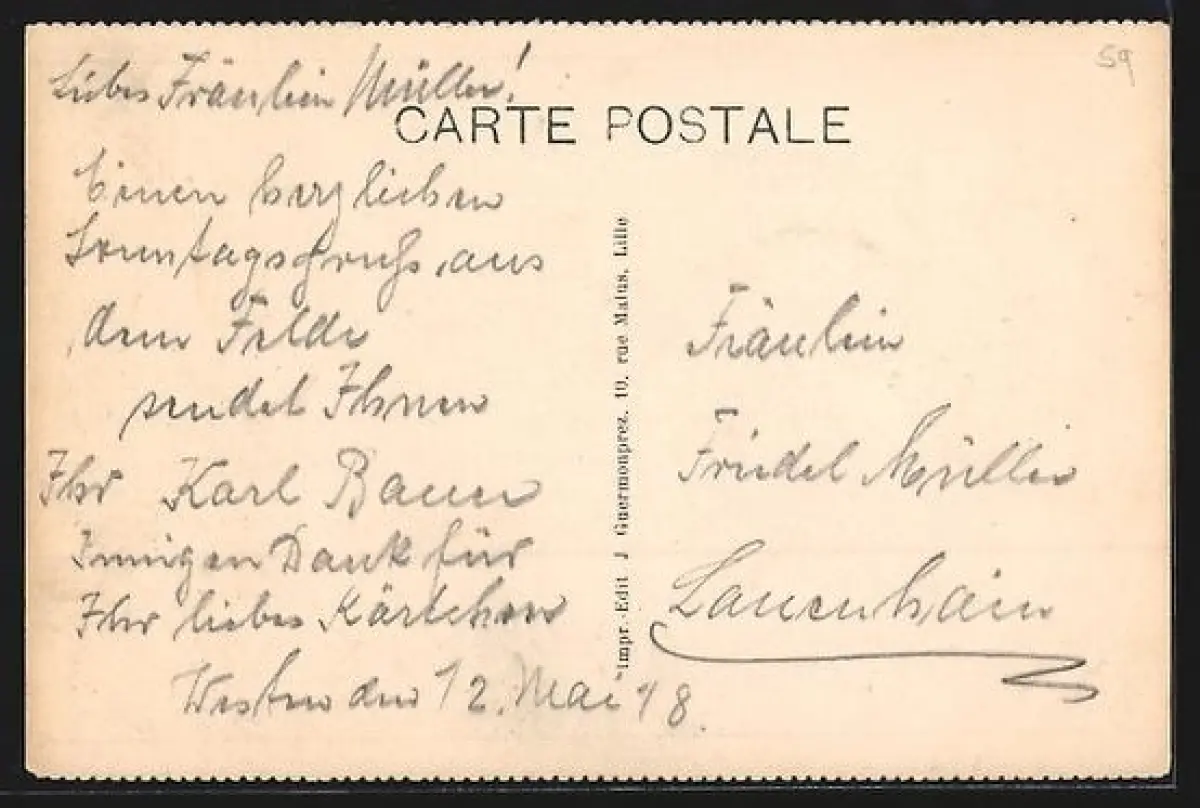 59
Liebes Fräulein Müller!
CARTE POSTALE
Einen herzlichen
Sonntagsgruß aus
dem Felde
sendet Ihnen
Ihr Karl Bauer
Innigen Dank für
Ihr liebes Kärtchen
Westen den 12. Mai 18.
Impr.-Edit. J Guermonprez, 10, rue Malus, Lille
Fräulein
Friedel Müller
Lauenhain